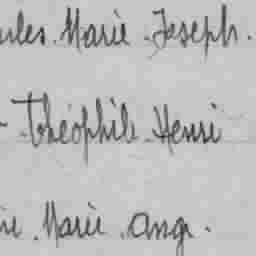 ules. Marie. Joseph.
- Théophile. Henri
ie. Marie. Ange.